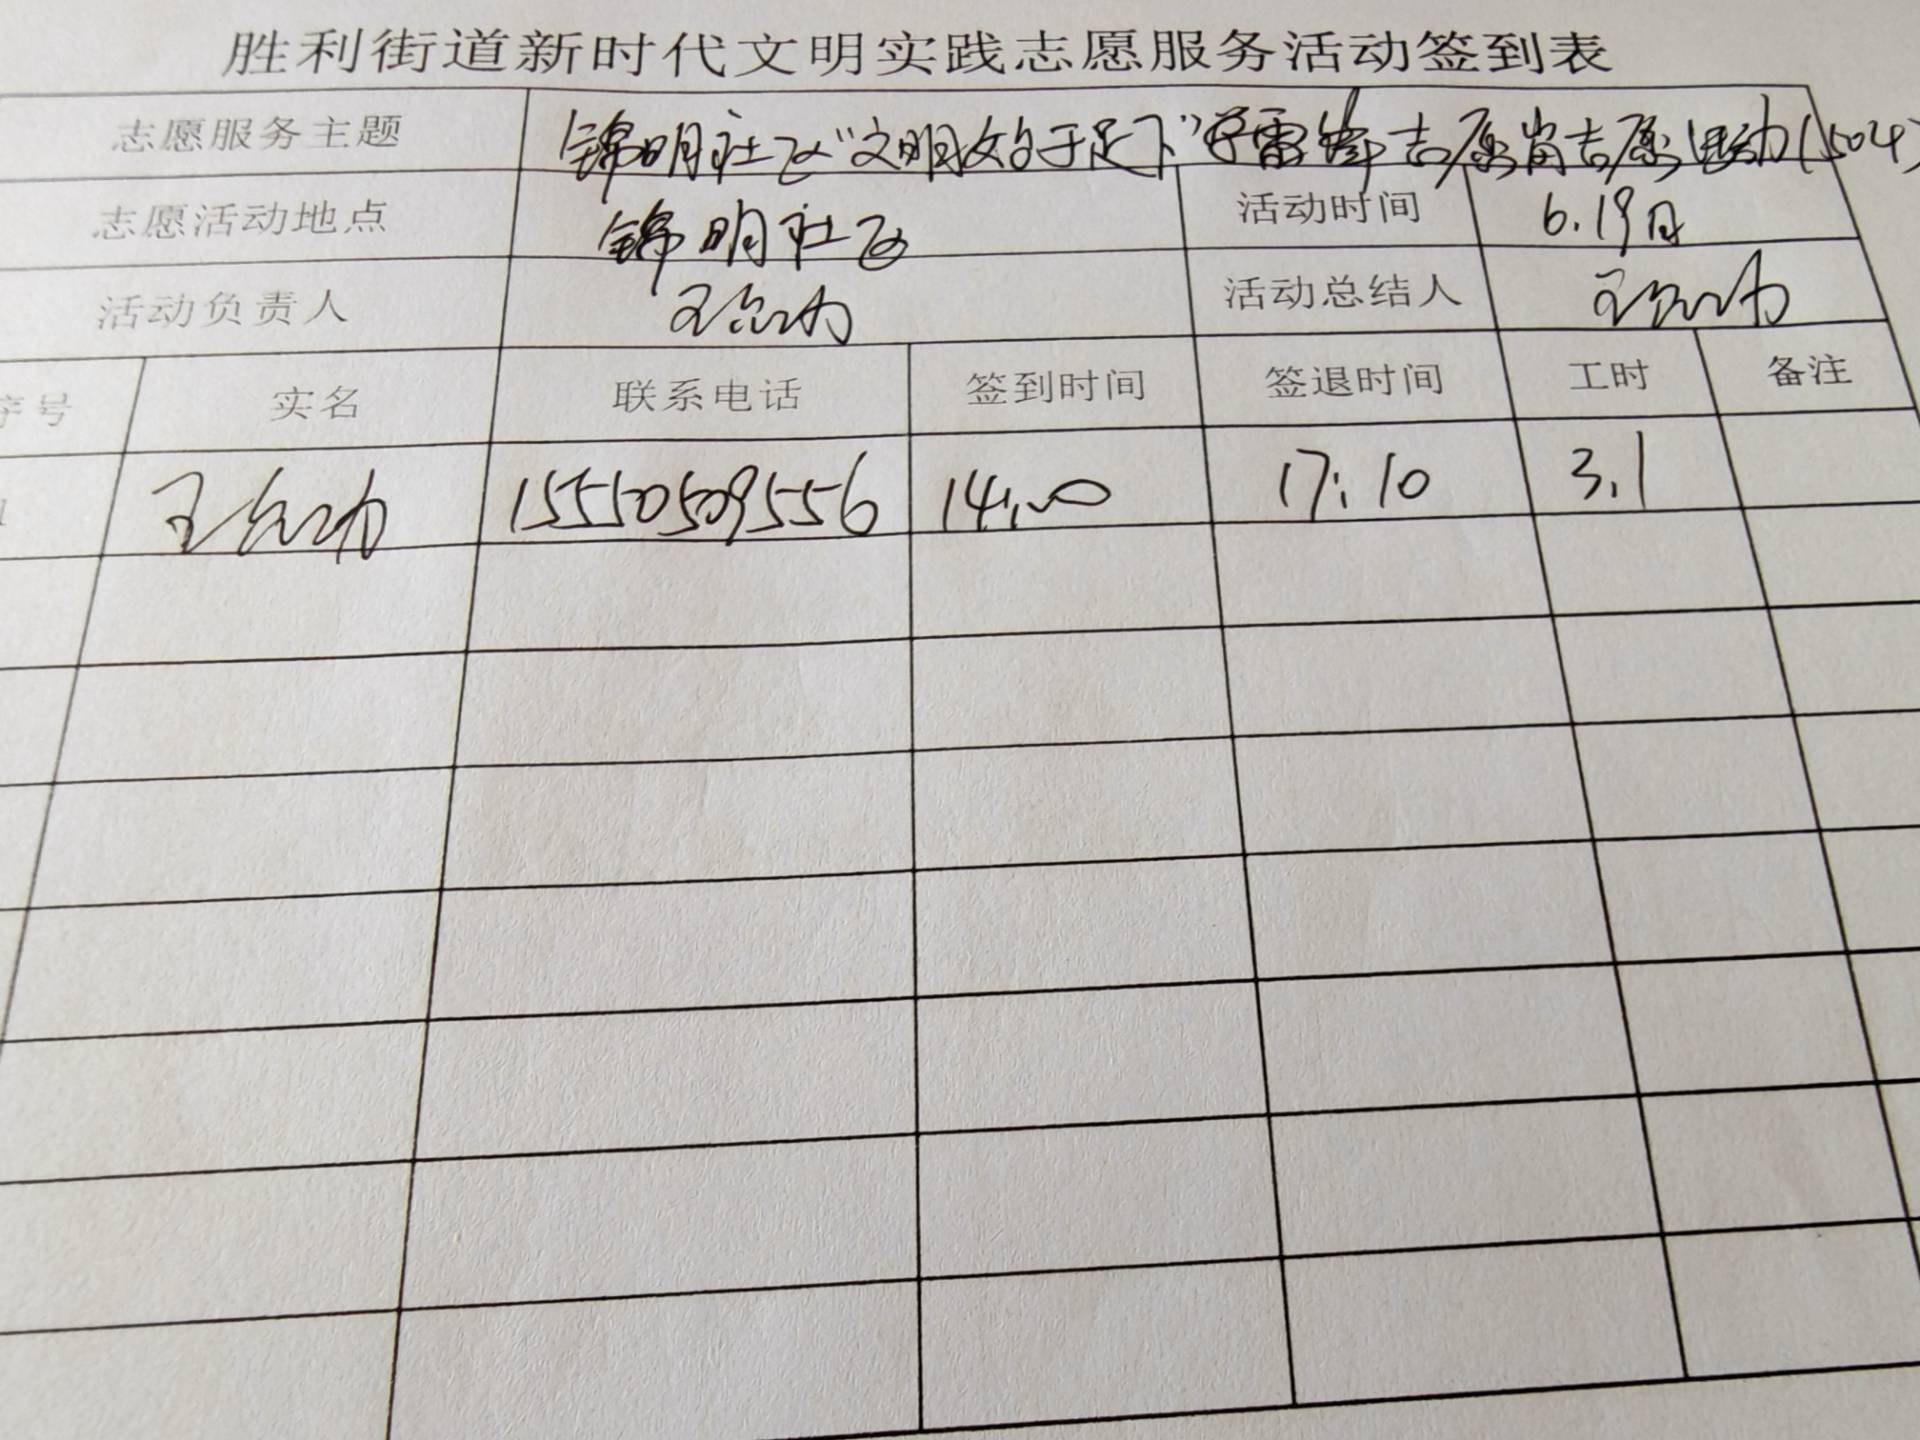 胜利街道新时代文明实践志愿服务活动签到表
志愿服务主题 锦明社区"文明始于足下"学雷锋志愿 志愿 活动(504)
志愿活动地点 锦明社区 活动时间 6.19日
活动负责人 王 活动总结人 王
序号 实名 联系电话 签到时间 签退时间 工时 备注
1 王 15550509556 14:00 17:10 3.1